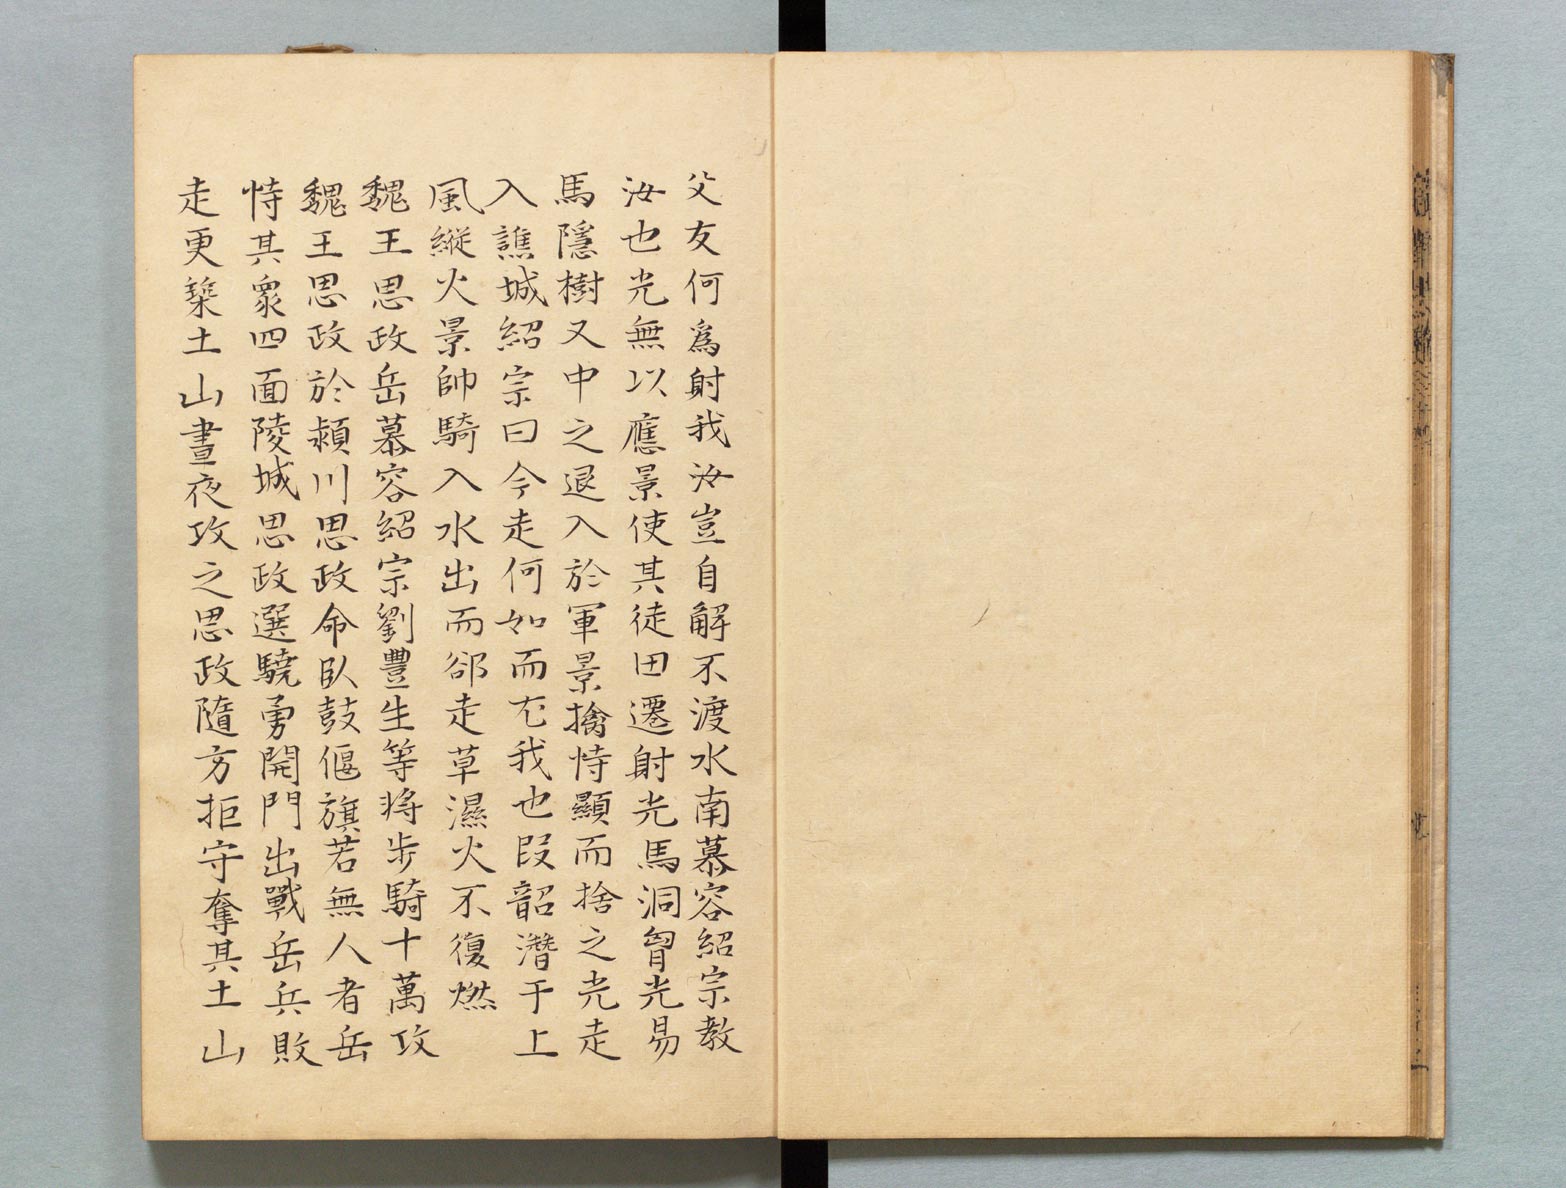 父友何爲射我汝豈自解不渡水南慕容紹宗教
汝也光無以應景使其徒田遷射光馬洞胷光易
馬隱樹又中之退入於軍景擒恃顯而捨之光走
入譙城紹宗曰今走何如而尤我也段韶潛于上
風縱火景帥騎入水出而郤走草濕火不復燃
魏王思政岳慕容紹宗劉豐生等將步騎十萬攻
魏王思政於潁川思政命臥鼓偃旗若無人者岳
恃其衆四面陵城思政選驍勇開門出戰岳兵敗
走更築土山晝夜攻之思政隨方拒守奪其土山